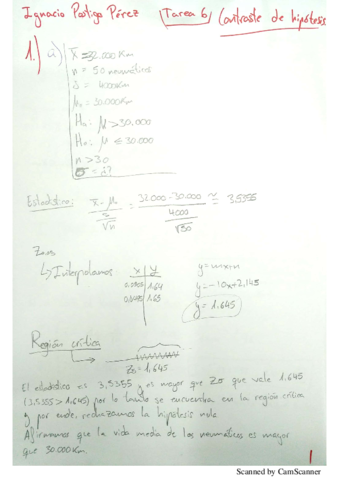 Ignacio Postigo Pérez
Tarea 6
Contraste de hipótesis
1.) a)
x̄ = 32.000 Km
n = 50 neumáticos
s = 4000Km
μ₀ = 30.000Km
μ > 30.000
μ ≤ 30.000
n > 30
σ = ¿?
Estadístico: x̄ - μ₀ / s/√n = 32.000 - 30.000 / 4000/√50 ≅ 3,5355
↳ Interpolamos
x y
1,64
1,65
y = mx+n
y = -10x+2,145
y = 1.645
Región crítica
= 1,645
El estadístico es 3,5355 y es mayor que que vale 1,645
(3,5355 > 1,645) por lo tanto se encuentra en la región crítica
y, por ende, rechazamos la hipótesis nula.
Afirmamos que la vida media de los neumáticos es mayor
que 30.000Km.
1
Scanned by CamScanner